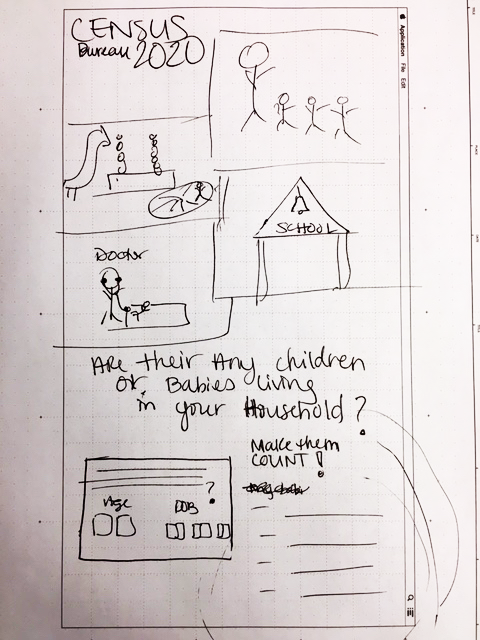 CENSUS
Bureau 2020
Application File Edit
SCHOOL
Doctor
Are their Any children
or Babies living
in your Household?
Make them
COUNT!
?
Age DOB